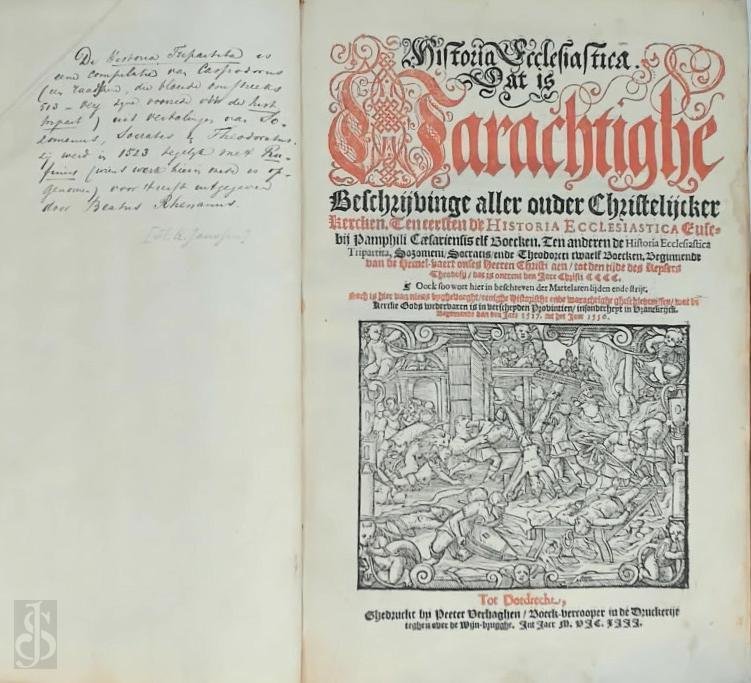 De Historia Tripartita is
eene compilatie van Cassiodorus
(een raadsheer, die bloeide omstreeks
513 – Vey zyne voorrede vóór de hist.
tripart.) uit verhalingen van So-
zomenus, Socrates & Theodoretus.
Zij werd in 1523 tegelijk met Ru-
finus (wiens werk hierin mede is op-
genomen) voor 't eerst uitgegeven
door Beatus Rhenanus.
[H.Q. Janssen]
Historia Ecclesiastica.
Dat is
Warachtighe
Beschrijvinge aller ouder Christelijcker
Kercken. Ten eersten de HISTORIA ECCLESIASTICA Euse-
bij Pamphili Cæsariensis elf Boecken. Ten anderen de Historia Ecclesiastica
Tripartita, Sozomeni, Socratis, ende Theodoreti twaelf Boecken, Beginnende
van de Hemel-vaert onses Heeren Christi aen / tot den tijde des Keysers
Theodosij / dat is ontrent den Jare Christi CCCC.
Oock soo wort hier in beschreven der Martelaren lijden ende strijt.
Noch is hier van nieus byghevoeght / eenighe Historische ende warachtighe gheschiedenissen / wat de
Kercke Gods wedervaren is in verscheyden Provintien / insonderheyt in Vranckrijck.
Beginnende van den Jare 1517. tot het Jaer 1556.
Tot Dordrecht,
Ghedruckt by Peeter Verhaghen / Boeck-vercooper in de Druckerije
teghen over de Wijn-brugghe. Int Jaer M. VIC. IIII.
JS